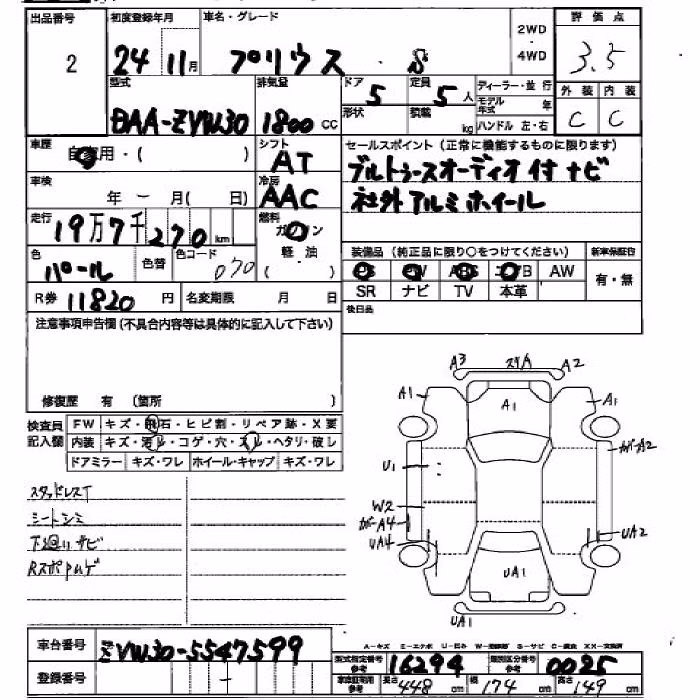 出品番号 初度登録年月 車名・グレード 2WD ・ 4WD 評価点
2 24 11月 プリウス S 3.5
型式 排気量 ドア 定員 ディーラー・並行 外装 内装
DAA-ZVW30 1800 cc 5 5人 モデル年式 年 C C
形状 積載 kg ハンドル 左・右
車歴 自家用・( ) シフト AT セールスポイント(正常に機能するものに限ります)
ブルトゥースオーディオ付 ナビ
車検 年 ー 月( 日) 冷房 AAC 社外アルミホイール
走行 19万7千270km 燃料 ガソリン
軽・油
( )
色 パール 色替 色コード 070 装備品(純正品に限り○をつけてください) 新車保証書
PS PW ABS エアB AW 有・無
R券 11820円 名変期限 月 日 SR ナビ TV 本革
注意事項申告欄(不具合内容等は具体的に記入して下さい) 後日品
修復歴 有 (箇所 )
検査員記入欄 FW キズ・飛石・ヒビ割・リペア跡・X要
内装 キズ・汚レ・コゲ・穴・スレ・ヘタリ・破レ
ドアミラー キズ・ワレ ホイール・キャップ キズ・ワレ
スタッドレスT
シートシミ
下廻りサビ
A3 A2
A1 A1 A1
U1 ガーA2
W2
ガーA4
UA4 UA2
UA1
UA1
A-キズ E-エクボ U-凹み S-サビ
車台番号 ZVW30-5547599 型式指定番号 参考 16294 類別区分番号 参考 0025
登録番号 - 車庫証明用 参考 長さ 448cm 幅 174cm 高さ 149cm